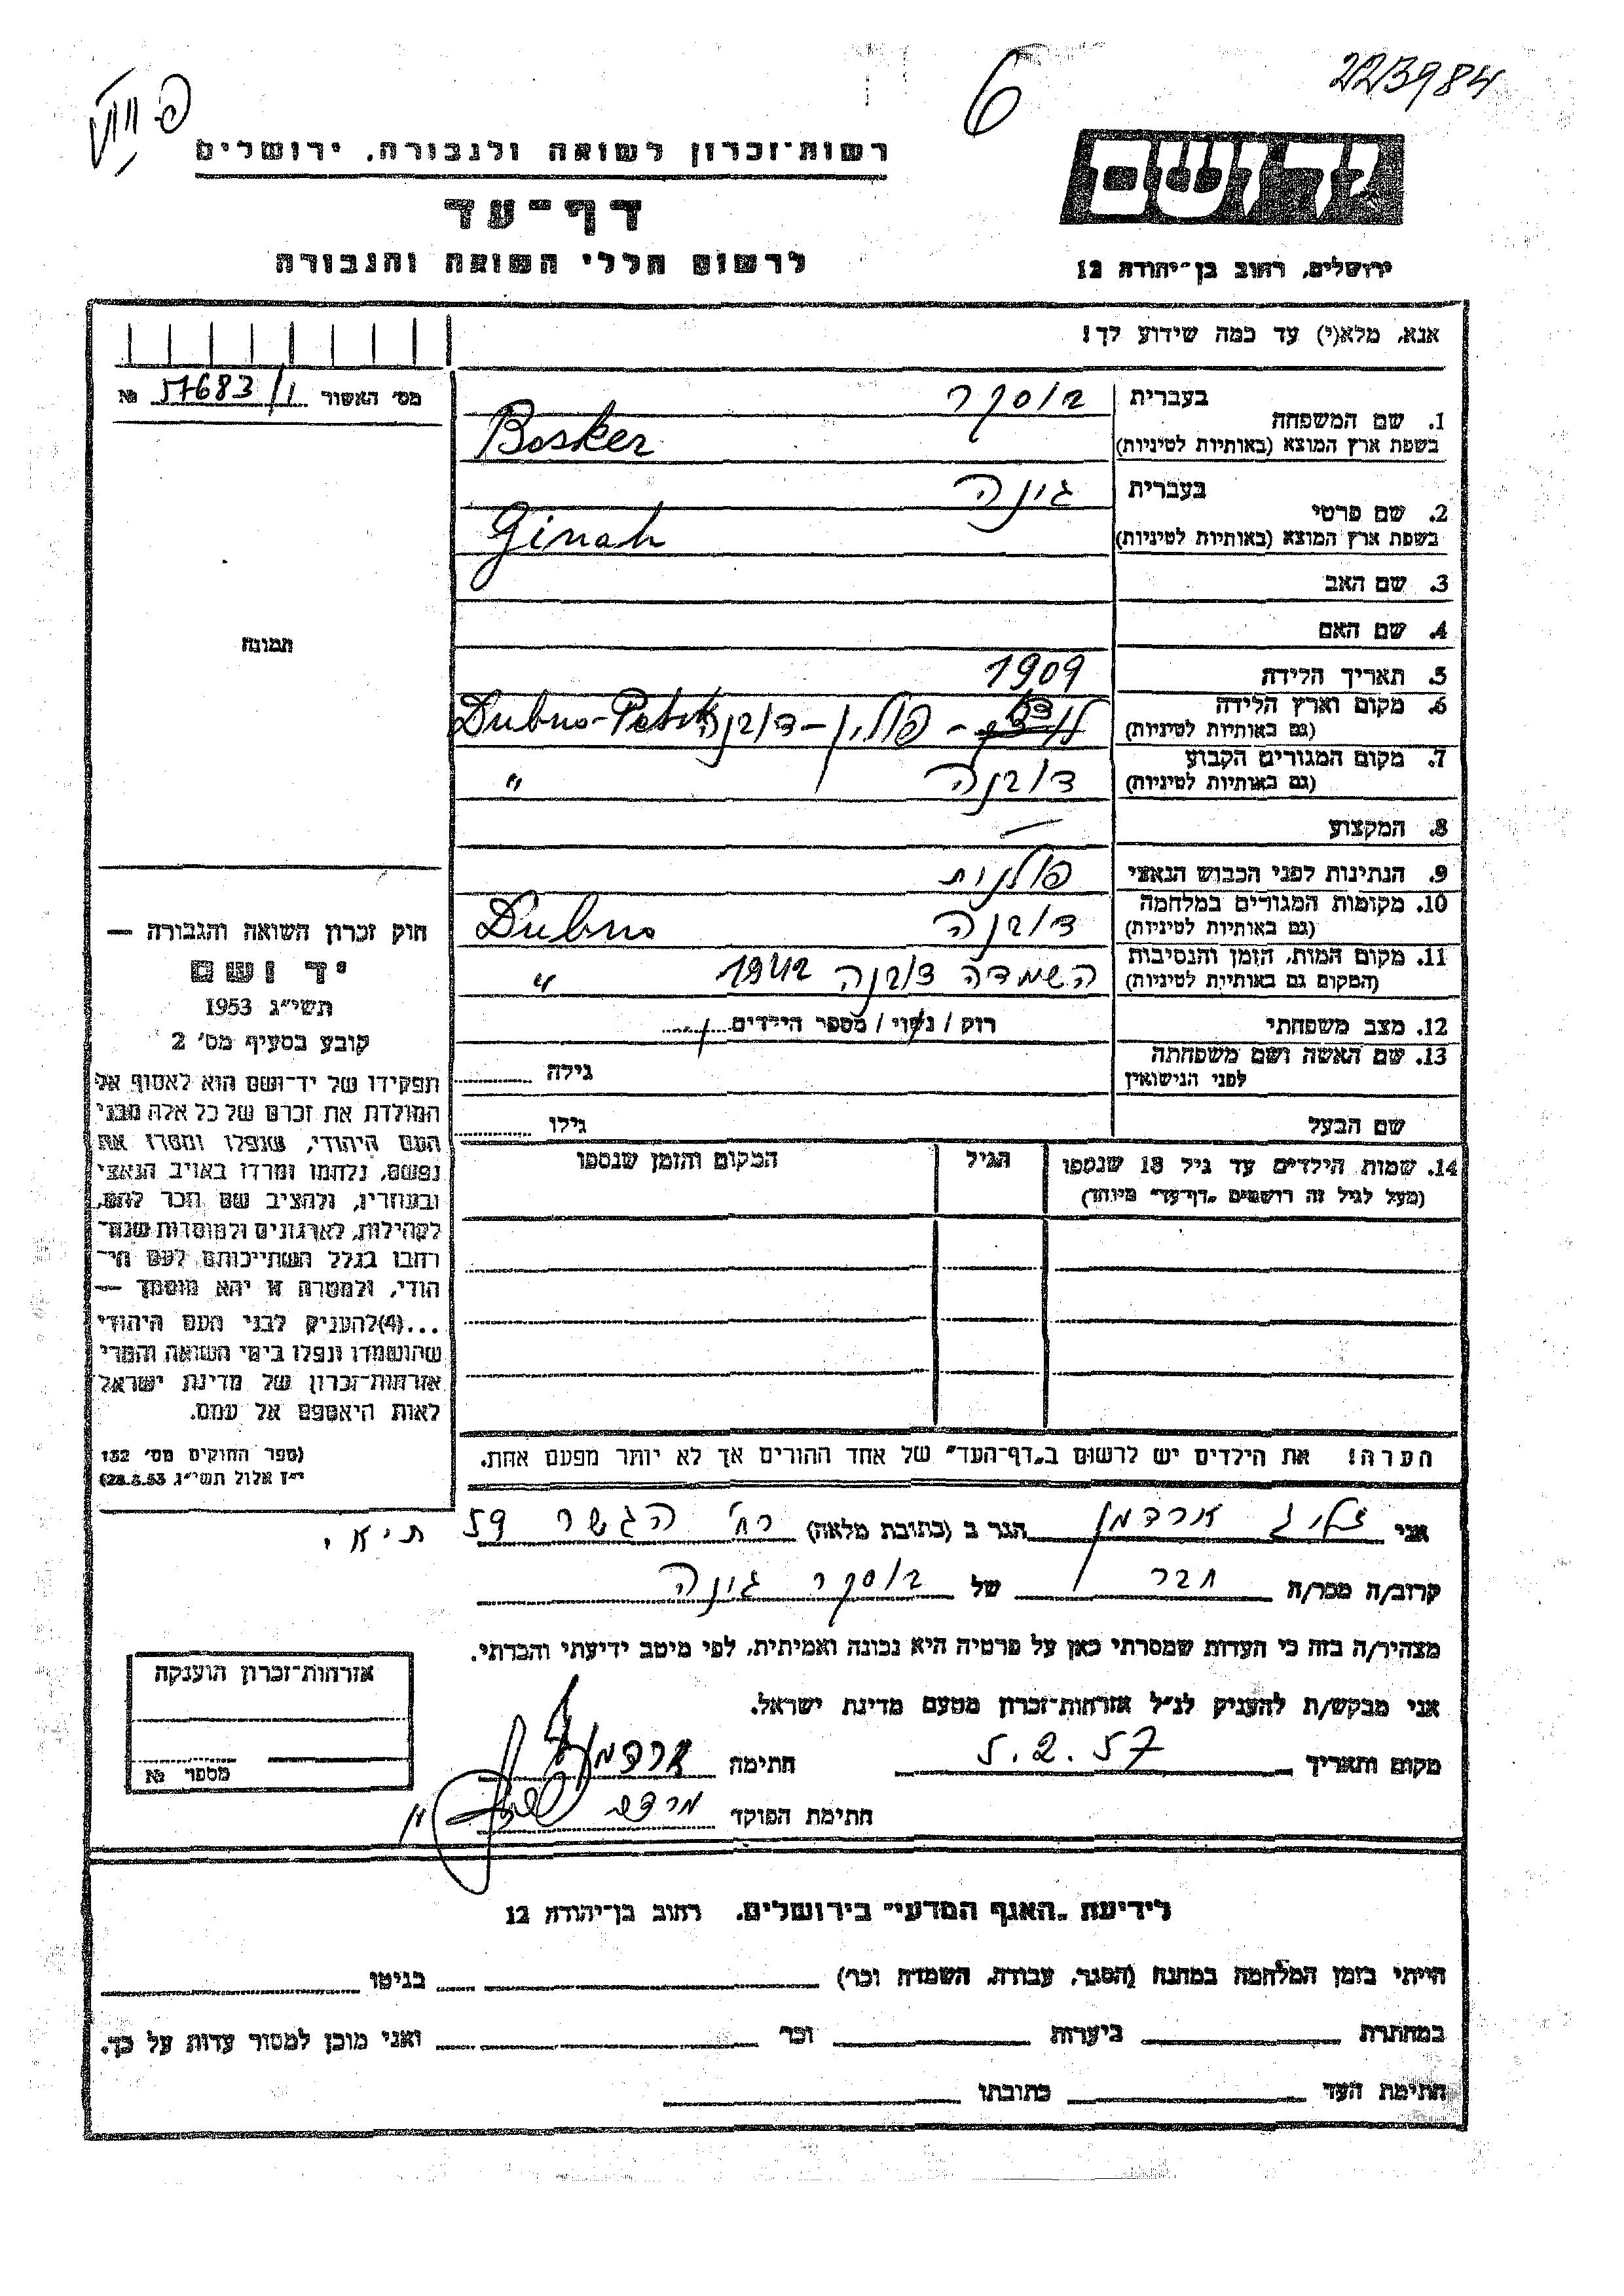 223984
6
רשות־זכרון לשואה ולגבורה, ירושלים
דף־עד
לרשום חללי השואה והגבורה
יד ושם
ירושלים, רחוב בן־יהודה 12
אנא, מלא(י) עד כמה שידוע לך!
מס׳ האשור 57683/1 №
תמונה
1. שם המשפחה
בעברית בוסקר
בשפת ארץ המוצא (באותיות לטיניות) Bosker
2. שם פרטי
בעברית גינה
בשפת ארץ המוצא (באותיות לטיניות) Ginah
3. שם האב
4. שם האם
5. תאריך הלידה 1909
6. מקום וארץ הלידה
(גם באותיות לטיניות) פולין – דובנה Dubno-
7. מקום המגורים הקבוע
(גם באותיות לטיניות) דובנה "
8. המקצוע —
9. הנתינות לפני הכבוש הנאצי פולנית
10. מקומות המגורים במלחמה
(גם באותיות לטיניות) דובנה Dubno
11. מקום המות, הזמן והנסיבות
(המקום גם באותיות לטיניות) השמדה דובנה 1942 "
12. מצב משפחתי רוק / נשוי / מספר הילדים
13. שם האשה ושם משפחתה
לפני הנישואין גילה
שם הבעל גילו
14. שמות הילדים עד גיל 18 שנספו הגיל המקום והזמן שנספו
(מעל לגיל זה רושמים „דף־עד״ מיוחד)
הערה! את הילדים יש לרשום ב„דף־העד״ של אחד ההורים אך לא יותר מפעם אחת.
חוק זכרון השואה והגבורה —
יד ושם
תשי״ג 1953
קובע בסעיף מס׳ 2
תפקידו של יד־ושם הוא לאסוף אל
המולדת את זכרם של כל אלה מבני
העם היהודי, שנפלו ומסרו את
נפשם, נלחמו ומרדו באויב הנאצי
ובעוזריו, ולהציב שם וזכר להם,
לקהילות, לארגונים ולמוסדות שנח־
רבו בגלל השתייכותם לעם הי־
הודי, ולמטרה זו יהא מוסמך —
...(4)להעניק לבני העם היהודי
שהושמדו ונפלו בימי השואה והמרי
אזרחות־זכרון של מדינת ישראל
לאות היאספם אל עמם.
(ספר החוקים מס׳ 132
י״ז אלול תשי״ג 28.8.53)
אני זליג ארדמן הגר ב (כתובת מלאה) רח׳ הגשר 59 ת״א
קרוב/ה מכר/ה חבר של בוסקר גינה
מצהיר/ה בזה כי העדות שמסרתי כאן על פרטיה היא נכונה ואמיתית, לפי מיטב ידיעתי והכרתי.
אני מבקש/ת להעניק לנ״ל אזרחות־זכרון מטעם מדינת ישראל.
מקום ותאריך 5.2.57 חתימה
חתימת הפוקד
אזרחות־זכרון הוענקה
מספר №
לידיעת „האגף המדעי״ בירושלים, רחוב בן־יהודה 12
הייתי בזמן המלחמה במחנה (הסגר, עבודה, השמדה וכו׳) בגיטו
במחתרת ביערות וכו׳ ואני מוכן למסור עדות על כך.
חתימת העד כתובתו